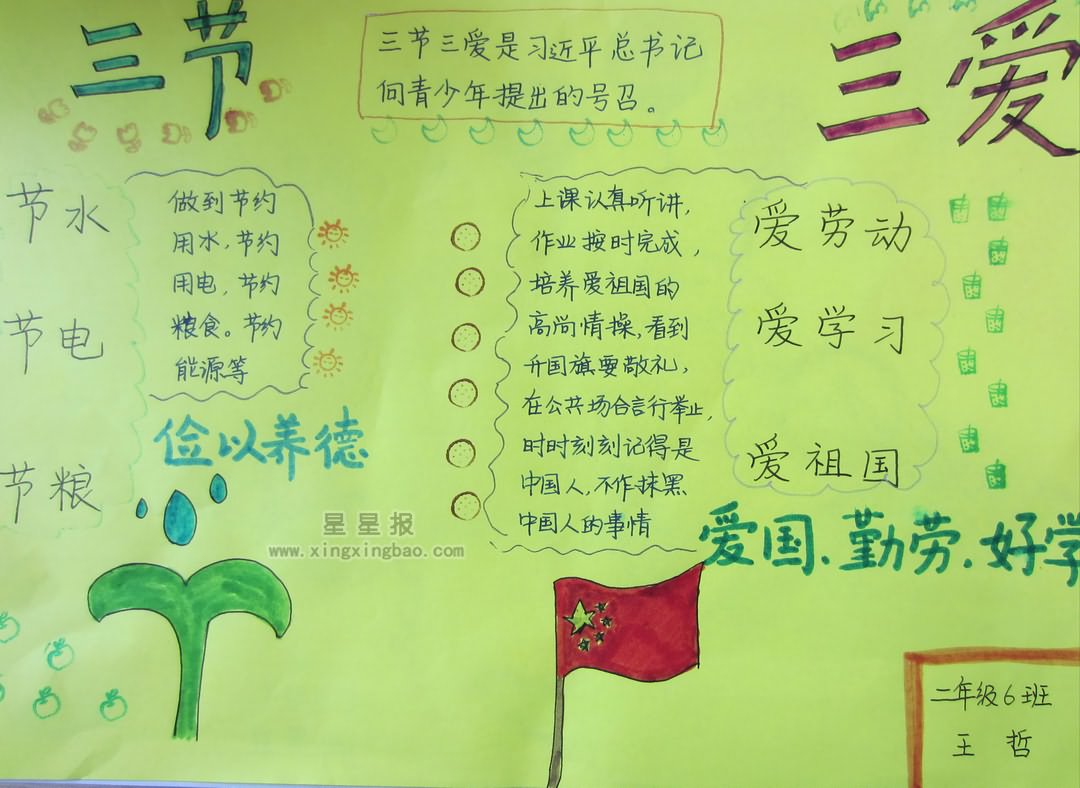 三节
三节三爱是习近平总书记
向青少年提出的号召。
三爱
节水
节电
节粮
做到节约
用水,节约
用电,节约
粮食。节约
能源等
俭以养德
上课认真听讲,
作业按时完成,
培养爱祖国的
高尚情操,看到
升国旗要敬礼,
在公共场合言行举止,
时时刻刻记得是
中国人,不作抹黑
中国人的事情
爱劳动
爱学习
爱祖国
爱国、勤劳、好学
星星报
www.xingxingbao.com
二年级6班
王 哲